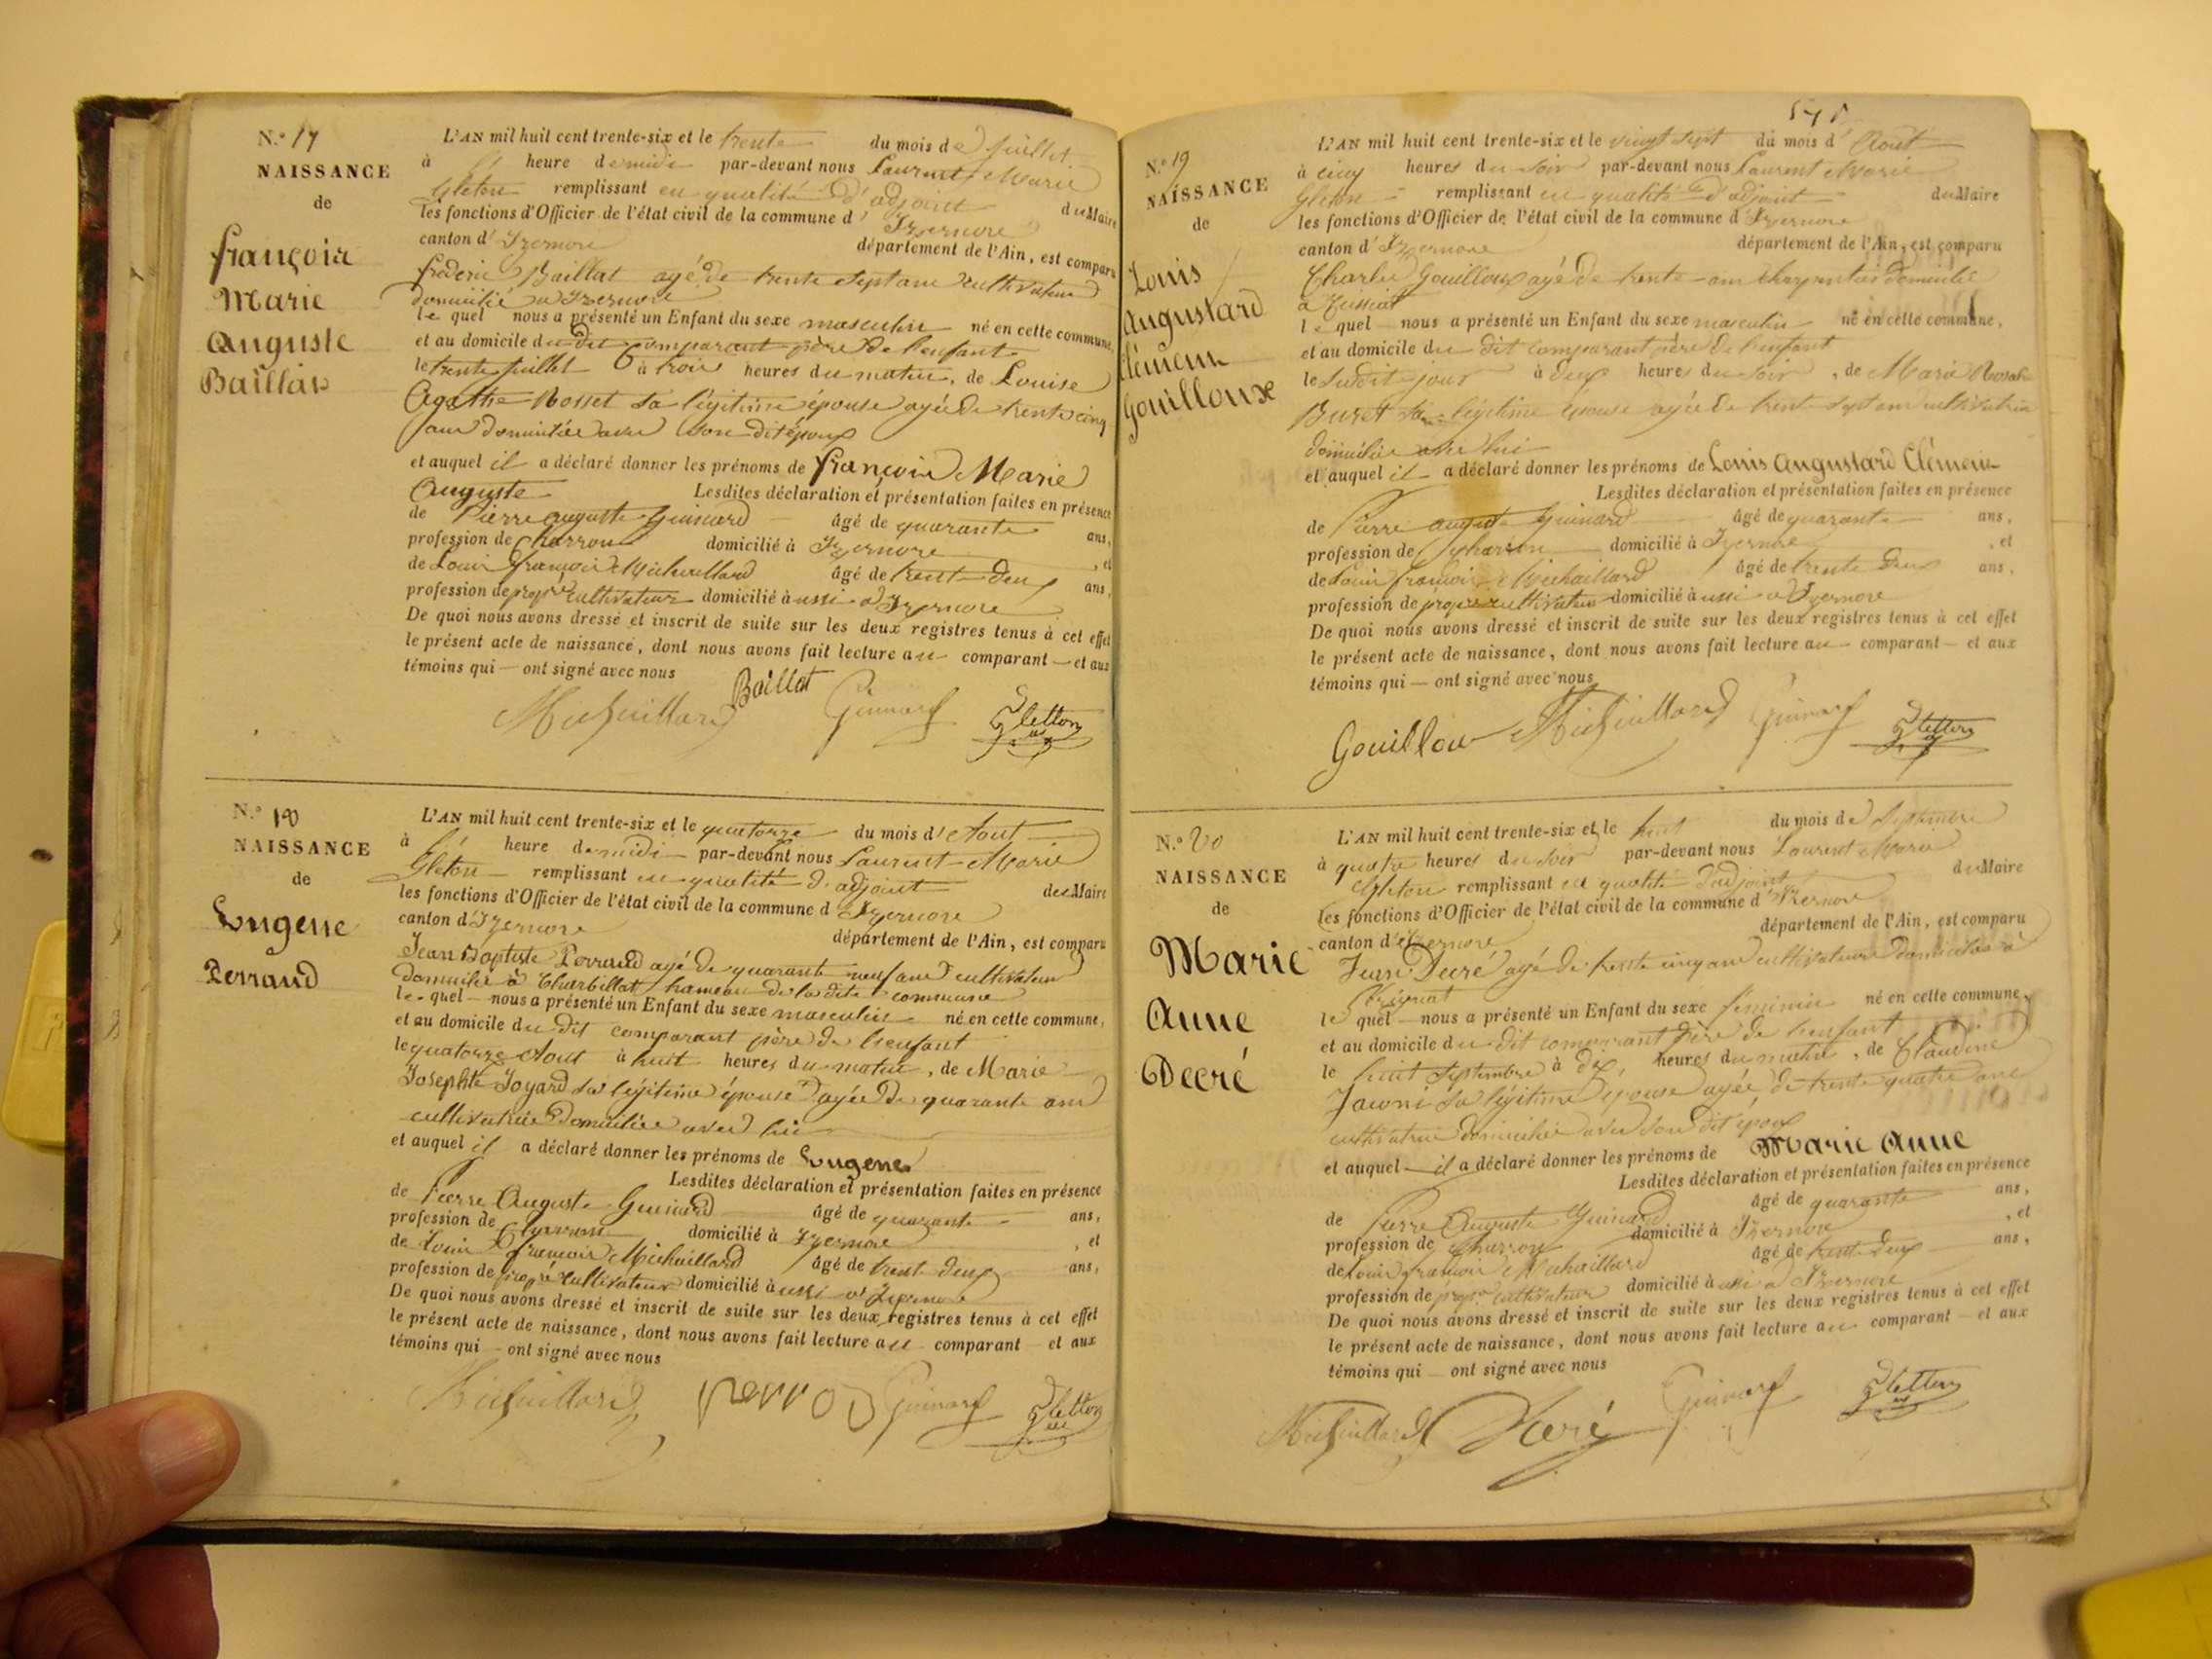 N.º 17
NAISSANCE
de
françois
Marie
Auguste
Baillat
L'AN mil huit cent trente-six et le trente du mois de Juillet
à heure de midi par-devant nous Laurent Marie
Gleton remplissant en qualité d'adjoint du Maire
les fonctions d'Officier de l'état civil de la commune d'Izernore
canton d'Izernore département de l'Ain, est comparu
frederic Baillat agé de trente sept ans cultivateur
domicilié a Izernore
le quel nous a présenté un Enfant du sexe masculin né en cette commune,
et au domicile du dit comparant père de l'enfant
le trente Juillet à trois heures du matin, de Louise
Agathe Rosset sa légitime épouse agée de trente cinq
ans domiciliée avec son dit époux
et auquel il a déclaré donner les prénoms de françois Marie
Auguste Lesdites déclaration et présentation faites en présence
de Pierre auguste Guinard âgé de quarante ans,
profession de Charron domicilié à Izernore, et
de Louis françois Michaillard âgé de trente deux ans,
profession de propre cultivateur domicilié aussi a Izernore
De quoi nous avons dressé et inscrit de suite sur les deux registres tenus à cet effet
le présent acte de naissance, dont nous avons fait lecture au comparant et aux
témoins qui ont signé avec nous
Michaillard Baillat Guinard Gletton
N.º 18
NAISSANCE
de
Eugene
Perraud
L'AN mil huit cent trente-six et le quatorze du mois d'Aout
à heure de midi par-devant nous Laurent Marie
Gleton remplissant en qualité d'adjoint du Maire
les fonctions d'Officier de l'état civil de la commune d'Izernore
canton d'Izernore département de l'Ain, est comparu
Jean Baptiste Perraud agé de quarante neuf ans cultivateur
domicilié à Charbillat hameau de la dite commune
le quel nous a présenté un Enfant du sexe masculin né en cette commune,
et au domicile du dit comparant père de l'enfant
le quatorze Aout à huit heures du matin, de Marie
Josephte Joyard sa légitime épouse agée de quarante ans
cultivatrice domiciliée avec lui
et auquel il a déclaré donner les prénoms de Eugene
Lesdites déclaration et présentation faites en présence
de Pierre Auguste Guinard âgé de quarante ans,
profession de Charron domicilié à Izernore, et
de Louis françois Michaillard âgé de trente deux ans,
profession de propre cultivateur domicilié aussi a Izernore
De quoi nous avons dressé et inscrit de suite sur les deux registres tenus à cet effet
le présent acte de naissance, dont nous avons fait lecture au comparant et aux
témoins qui ont signé avec nous
Michaillard Guinard Gletton
N.º 19
NAISSANCE
de
Louis
Augustard
Clément
Gouilloux
L'AN mil huit cent trente-six et le vingt sept du mois d'Aout
à cinq heures du soir par-devant nous Laurent Marie
Gleton remplissant en qualité d'adjoint du Maire
les fonctions d'Officier de l'état civil de la commune d'Izernore
canton d'Izernore département de l'Ain, est comparu
Charles Gouilloux agé de trente ans charpentier domicilié
à Tissiat
le quel nous a présenté un Enfant du sexe masculin né en cette commune,
et au domicile du dit comparant père de l'enfant
le susdit jour à deux heures du soir, de Marie
Buret sa légitime épouse agée de trente sept ans cultivatrice
domiciliée avec lui
et auquel il a déclaré donner les prénoms de Louis Augustard Clément
Lesdites déclaration et présentation faites en présence
de Pierre auguste Guinard âgé de quarante ans,
profession de Charron domicilié à Izernore, et
de Louis françois Michaillard âgé de trente deux ans,
profession de propre cultivateur domicilié aussi a Izernore
De quoi nous avons dressé et inscrit de suite sur les deux registres tenus à cet effet
le présent acte de naissance, dont nous avons fait lecture au comparant et aux
témoins qui ont signé avec nous
Gouilloux Michaillard Guinard Gletton
N.º 20
NAISSANCE
de
Marie
Anne
Decré
L'AN mil huit cent trente-six et le huit du mois de Septembre
à quatre heures du soir par-devant nous Laurent Marie
Gleton remplissant en qualité d'adjoint du Maire
les fonctions d'Officier de l'état civil de la commune d'Izernore
canton d'Izernore département de l'Ain, est comparu
Jean Decré agé de trente cinq ans cultivateur domicilié à
le quel nous a présenté un Enfant du sexe féminin né en cette commune,
et au domicile du dit comparant père de l'enfant
le huit Septembre à dix heures du matin, de Claudine
sa légitime épouse agée de trente quatre ans
cultivatrice domiciliée avec son dit époux
et auquel il a déclaré donner les prénoms de Marie Anne
Lesdites déclaration et présentation faites en présence
de Pierre Auguste Guinard âgé de quarante ans,
profession de Charron domicilié à Izernore, et
de Louis françois Michaillard âgé de trente deux ans,
profession de propre cultivateur domicilié aussi a Izernore
De quoi nous avons dressé et inscrit de suite sur les deux registres tenus à cet effet
le présent acte de naissance, dont nous avons fait lecture au comparant et aux
témoins qui ont signé avec nous
Michaillard Guinard Gletton